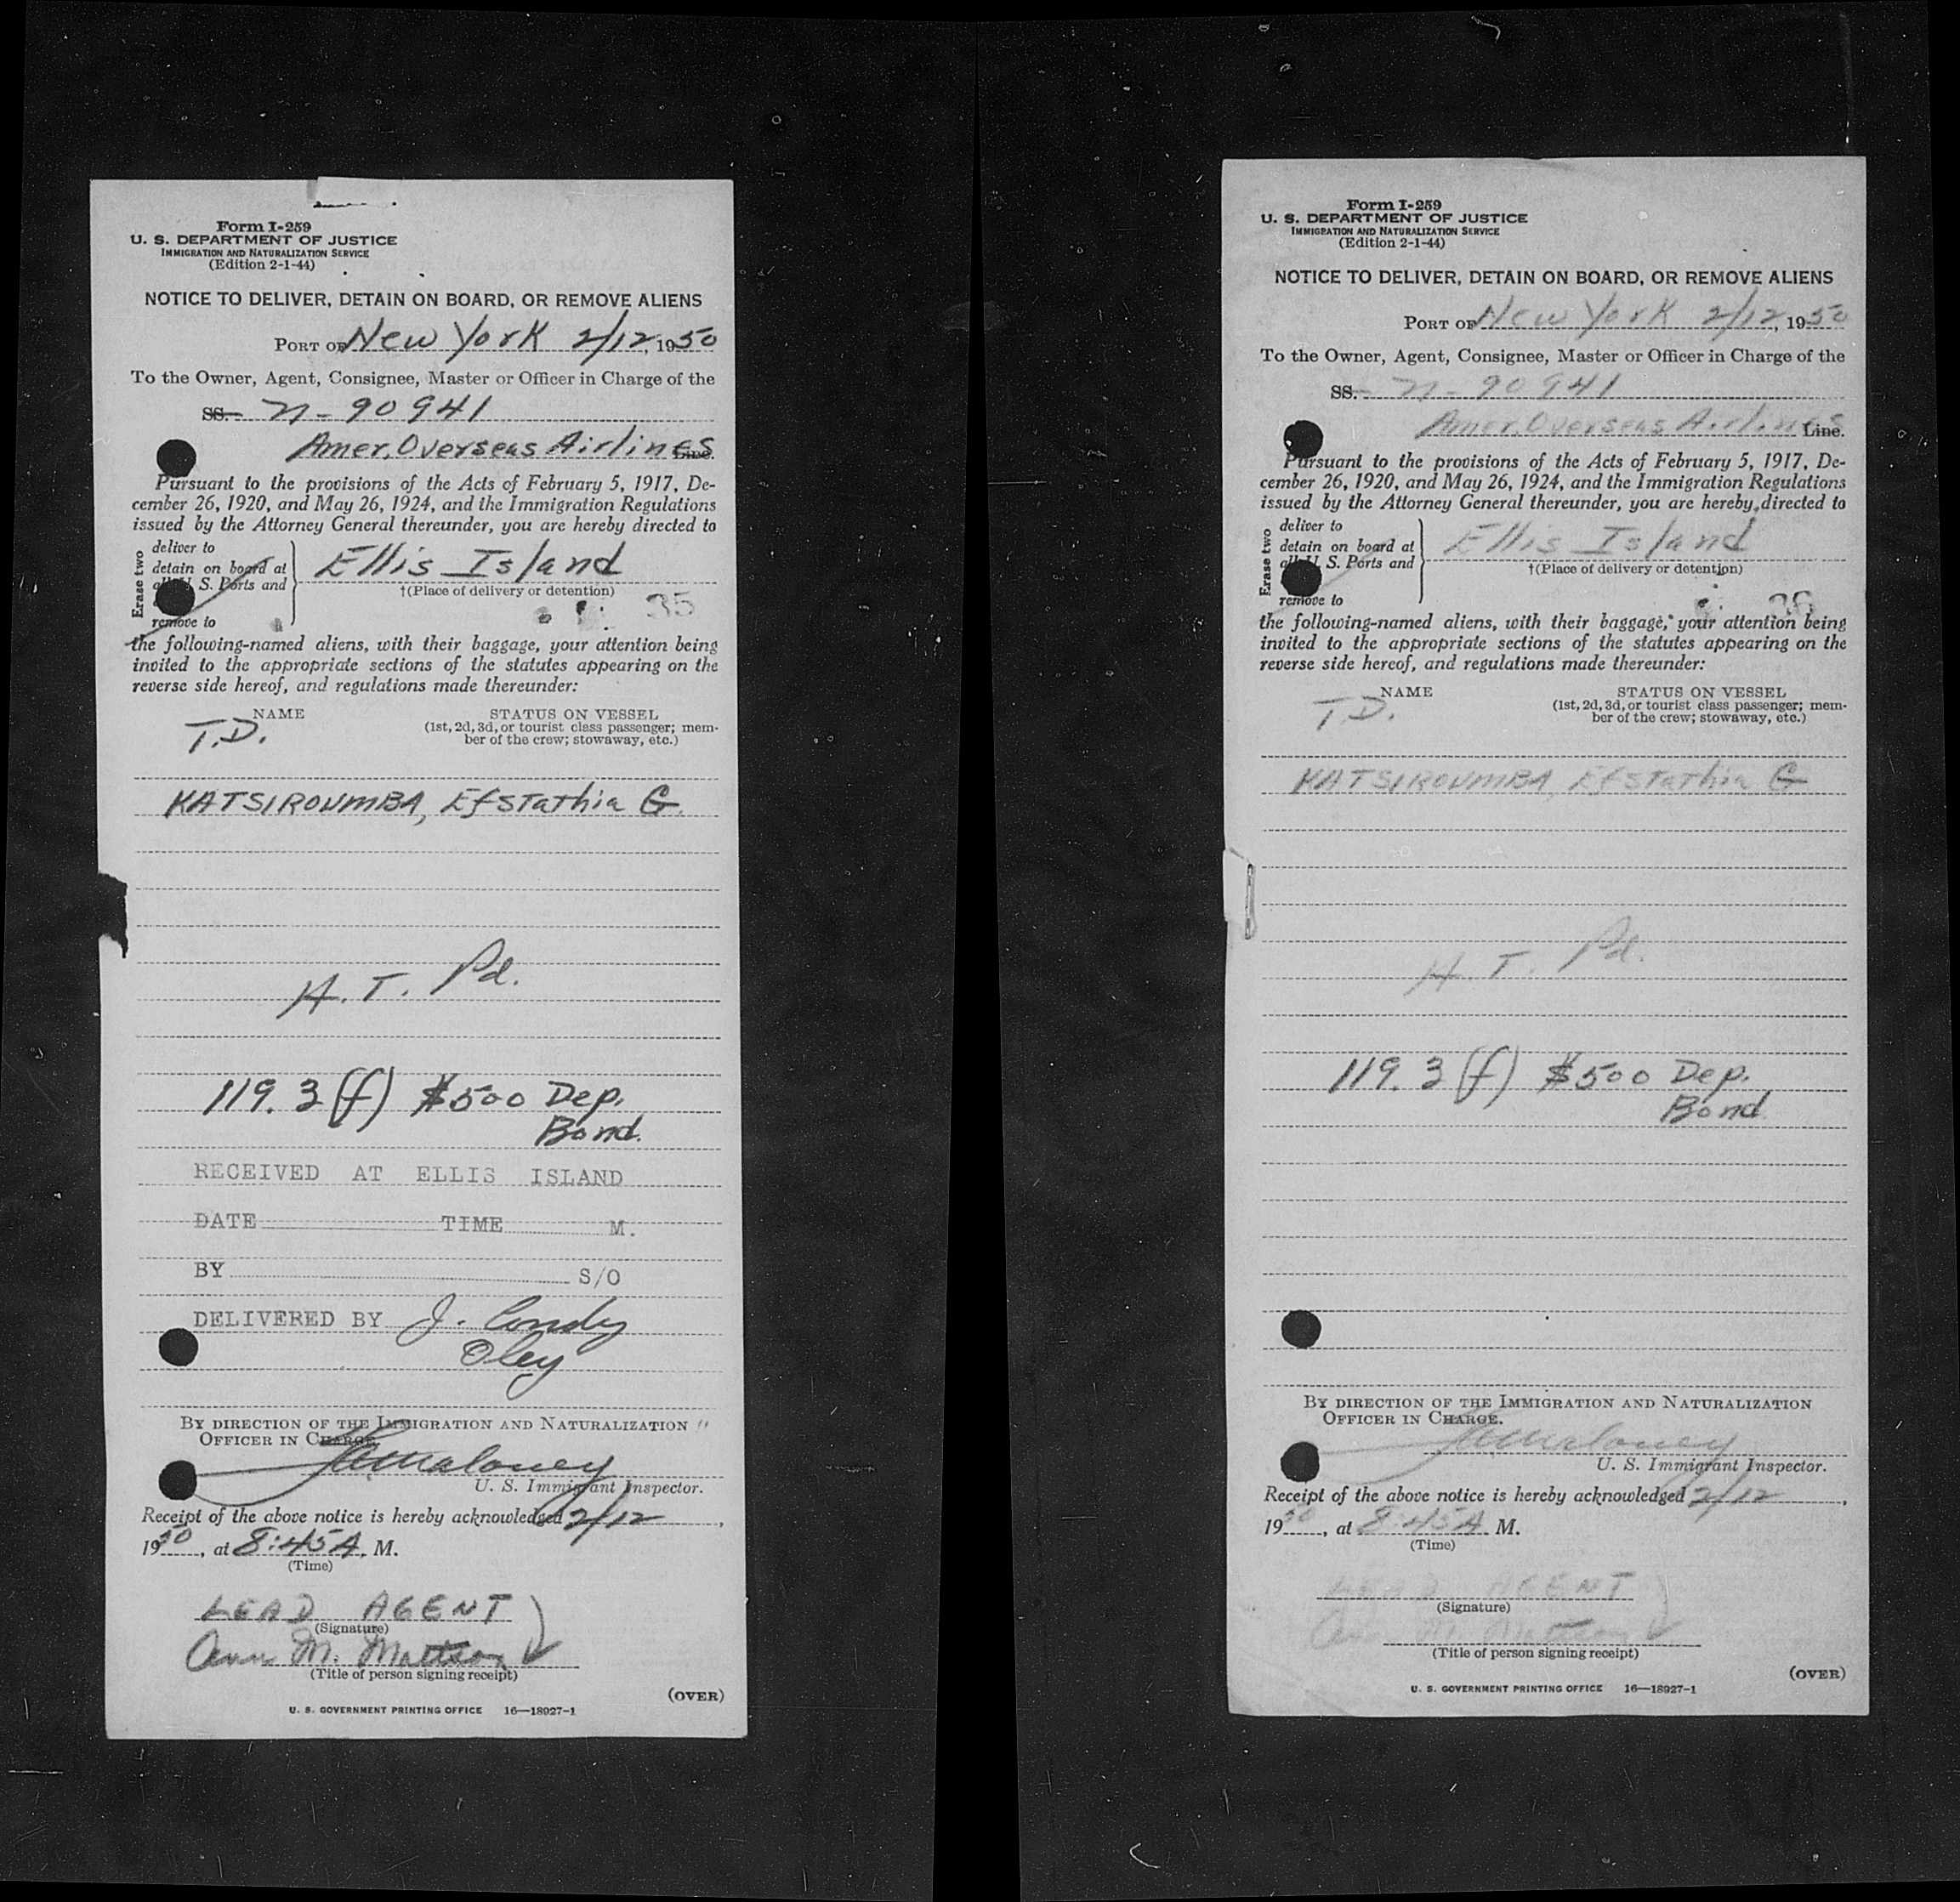 Form I-259
U. S. DEPARTMENT OF JUSTICE
IMMIGRATION AND NATURALIZATION SERVICE
(Edition 2-1-44)
NOTICE TO DELIVER, DETAIN ON BOARD, OR REMOVE ALIENS
PORT OF New York 2/12, 1950
To the Owner, Agent, Consignee, Master or Officer in Charge of the
SS. N-90941
Amer. Overseas Airlines Line.
Pursuant to the provisions of the Acts of February 5, 1917, De-
cember 26, 1920, and May 26, 1924, and the Immigration Regulations
issued by the Attorney General thereunder, you are hereby directed to
Erase two
deliver to
detain on board at
all U. S. Ports and
remove to
Ellis Island
†(Place of delivery or detention)
35
the following-named aliens, with their baggage, your attention being
invited to the appropriate sections of the statutes appearing on the
reverse side hereof, and regulations made thereunder:
NAME STATUS ON VESSEL
T.D. (1st, 2d, 3d, or tourist class passenger; mem-
ber of the crew; stowaway, etc.)
KATSIROUMBA, Efstathia G.
H. T. Pd.
119.3 (f) $500 Dep.
Bond.
RECEIVED AT ELLIS ISLAND
DATE TIME M.
BY S/O
DELIVERED BY J.
BY DIRECTION OF THE IMMIGRATION AND NATURALIZATION
OFFICER IN CHARGE.
Maloney
U. S. Immigrant Inspector.
Receipt of the above notice is hereby acknowledged 2/12,
1950, at 8:45 A. M.
(Time)
LEAD AGENT
(Signature)
Ann M. Mattson
(Title of person signing receipt)
(OVER)
U. S. GOVERNMENT PRINTING OFFICE 16—18927-1
Form I-259
U. S. DEPARTMENT OF JUSTICE
IMMIGRATION AND NATURALIZATION SERVICE
(Edition 2-1-44)
NOTICE TO DELIVER, DETAIN ON BOARD, OR REMOVE ALIENS
PORT OF New York 2/12, 1950
To the Owner, Agent, Consignee, Master or Officer in Charge of the
SS. N-90941
Amer. Overseas Airlines Line.
Pursuant to the provisions of the Acts of February 5, 1917, De-
cember 26, 1920, and May 26, 1924, and the Immigration Regulations
issued by the Attorney General thereunder, you are hereby directed to
Erase two
deliver to
detain on board at
all U. S. Ports and
remove to
Ellis Island
†(Place of delivery or detention)
the following-named aliens, with their baggage, your attention being
invited to the appropriate sections of the statutes appearing on the
reverse side hereof, and regulations made thereunder:
NAME STATUS ON VESSEL
T.D. (1st, 2d, 3d, or tourist class passenger; mem-
ber of the crew; stowaway, etc.)
KATSIROUMBA, Efstathia G
H. T. Pd.
119.3 (f) $500 Dep.
Bond
BY DIRECTION OF THE IMMIGRATION AND NATURALIZATION
OFFICER IN CHARGE.
Maloney
U. S. Immigrant Inspector.
Receipt of the above notice is hereby acknowledged 2/12,
1950, at 8:45 A. M.
(Time)
LEAD AGENT
(Signature)
Ann M. Mattson
(Title of person signing receipt)
(OVER)
U. S. GOVERNMENT PRINTING OFFICE 16—18927-1